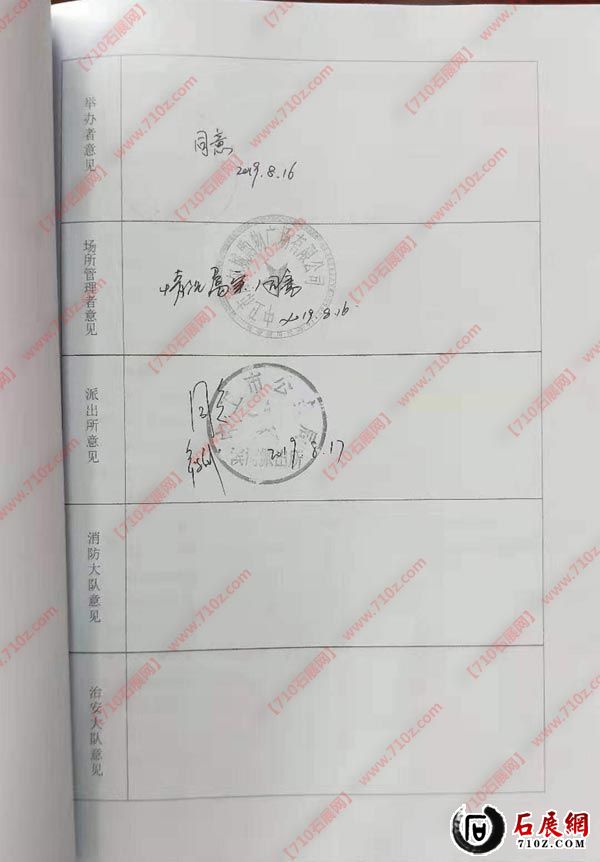 【710石展网】
www.710z.com
举办者意见
同意
2019.8.16
场所管理者意见
购物广场有限公司
情况属实,同意
2019.8.16
派出所意见
同意
市公 局
派出所
2019.8.17
消防大队意见
治安大队意见
石展網
710Z.COM